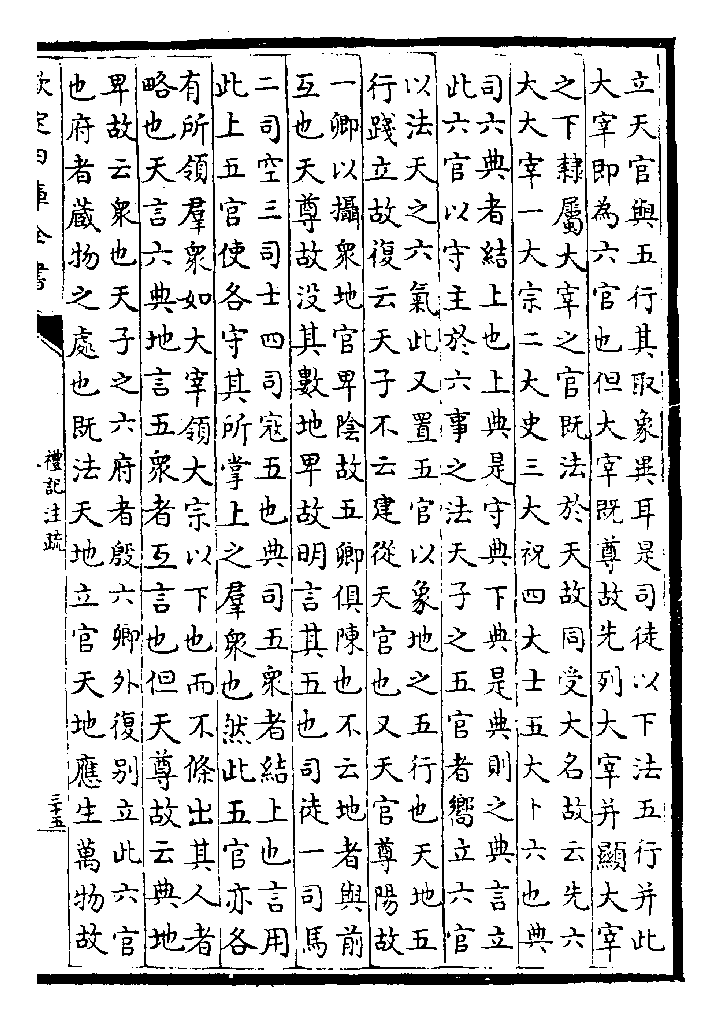 立天官與五行其取象異耳是司徒以下法五行并此
大宰即為六官也但大宰既尊故先列大宰并顯大宰
之下隸屬大宰之官既法於天故同受大名故云先六
大大宰一大宗二大史三大祝四大士五大卜六也典
司六典者結上也上典是守典下典是典則之典言立
此六官以守主於六事之法天子之五官者嚮立六官
以法天之六氣此又置五官以象地之五行也天地五
行踐立故復云天子不云建從天官也又天官尊陽故
一卿以攝衆地官卑陰故五卿俱陳也不云地者與前
互也天尊故没其數地卑故明言其五也司徒一司馬
二司空三司士四司寇五也典司五衆者結上也言用
此上五官使各守其所掌上之羣衆也然此五官亦各
有所領羣衆如大宰領大宗以下也而不條出其人者
略也天言六典地言五衆者互言也但天尊故云典地
卑故云衆也天子之六府者殷六卿外復別立此六官
也府者蔵物之處也既法天地立官天地應生萬物故
欽定四庫全書
禮記注疏
三十五